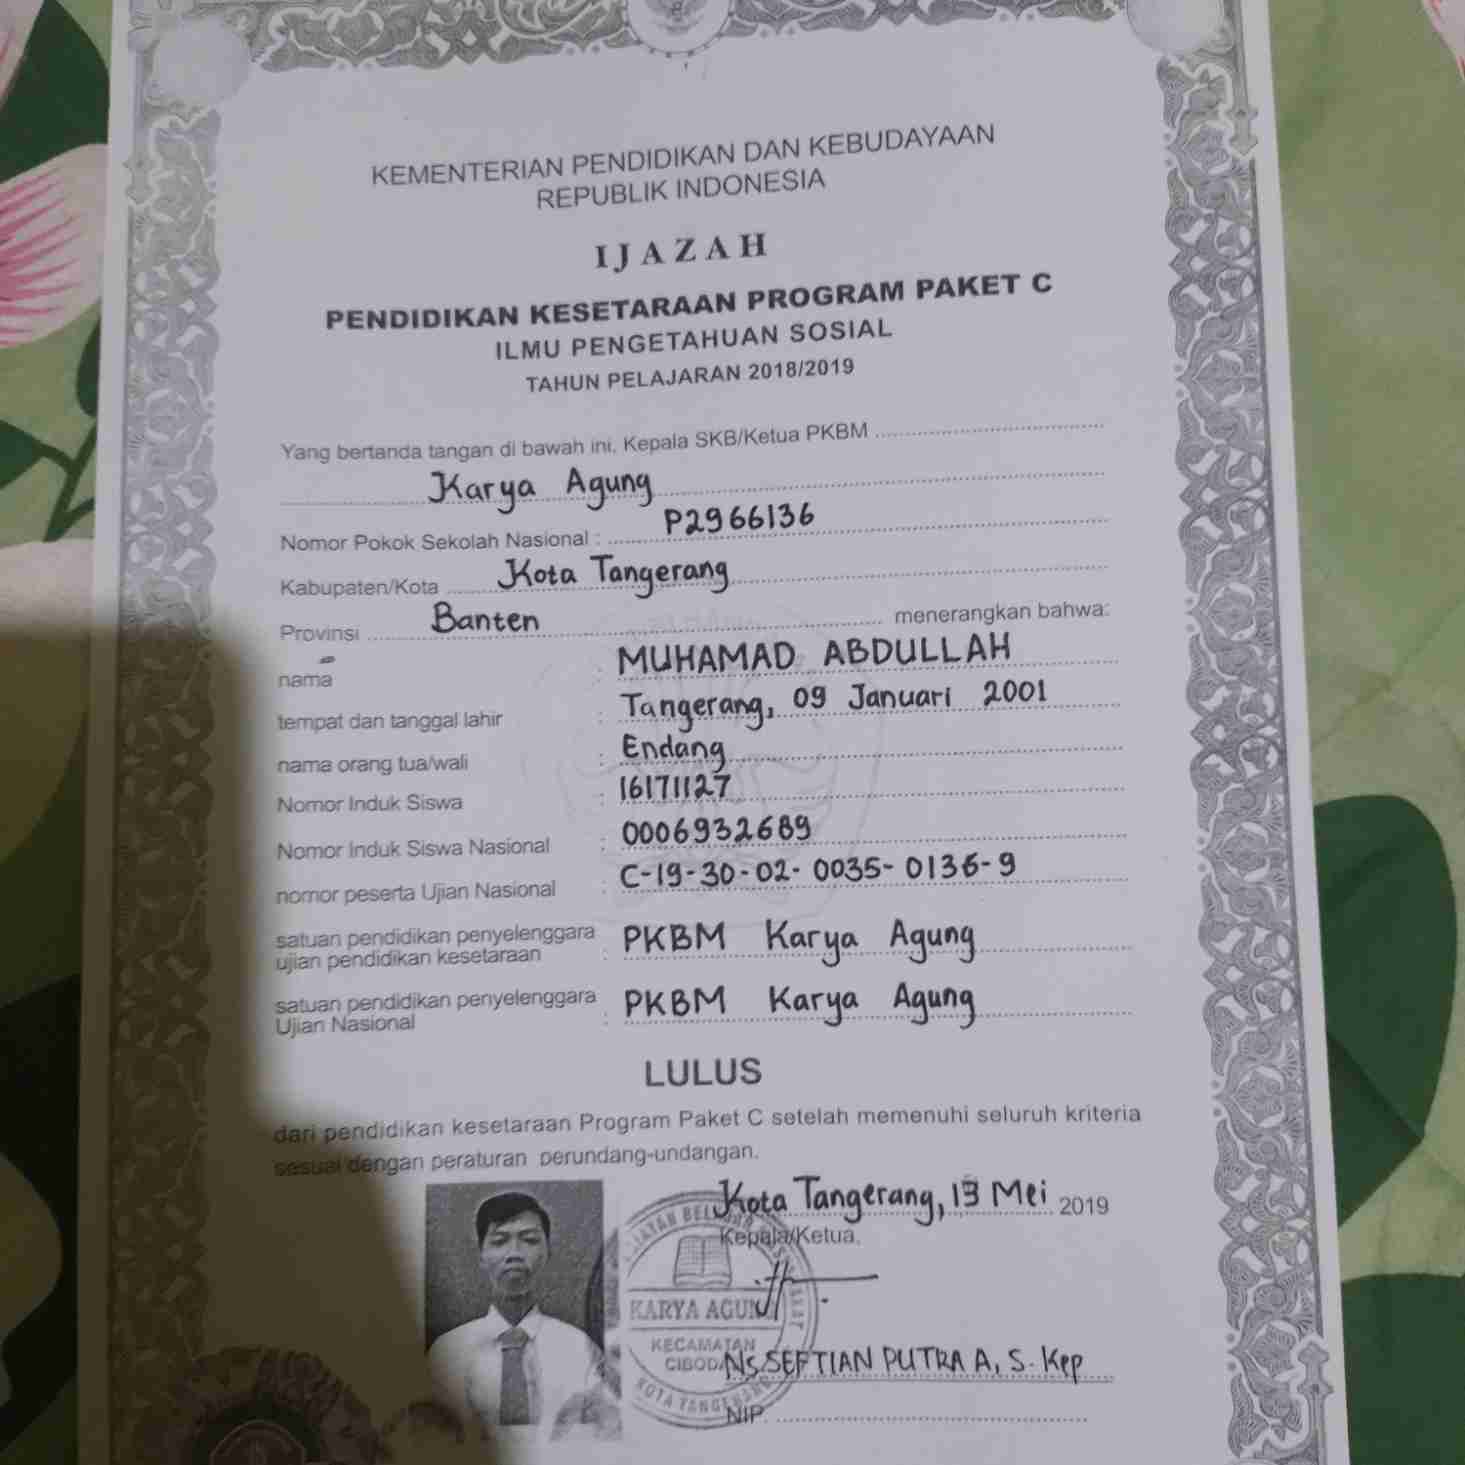 KEMENTERIAN PENDIDIKAN DAN KEBUDAYAAN
REPUBLIK INDONESIA
IJAZAH
PENDIDIKAN KESETARAAN PROGRAM PAKET C
ILMU PENGETAHUAN SOSIAL
TAHUN PELAJARAN 2018/2019
Yang bertanda tangan di bawah ini, Kepala SKB/Ketua PKBM
Karya Agung
Nomor Pokok Sekolah Nasional : P2966136
Kabupaten/Kota Kota Tangerang
Provinsi Banten menerangkan bahwa:
nama : MUHAMAD ABDULLAH
tempat dan tanggal lahir : Tangerang, 09 Januari 2001
nama orang tua/wali : Endang
Nomor Induk Siswa : 16171127
Nomor Induk Siswa Nasional : 0006932689
nomor peserta Ujian Nasional : C-19-30-02-0035-0136-9
satuan pendidikan penyelenggara
ujian pendidikan kesetaraan : PKBM Karya Agung
satuan pendidikan penyelenggara
Ujian Nasional : PKBM Karya Agung
LULUS
dari pendidikan kesetaraan Program Paket C setelah memenuhi seluruh kriteria
sesuai dengan peraturan perundang-undangan.
Kota Tangerang, 13 Mei 2019
Kepala/Ketua,
KARYA AGUNG
KECAMATAN
KOTA TANGERANG
Ns. SEFTIAN PUTRA A, S. Kep
NIP.